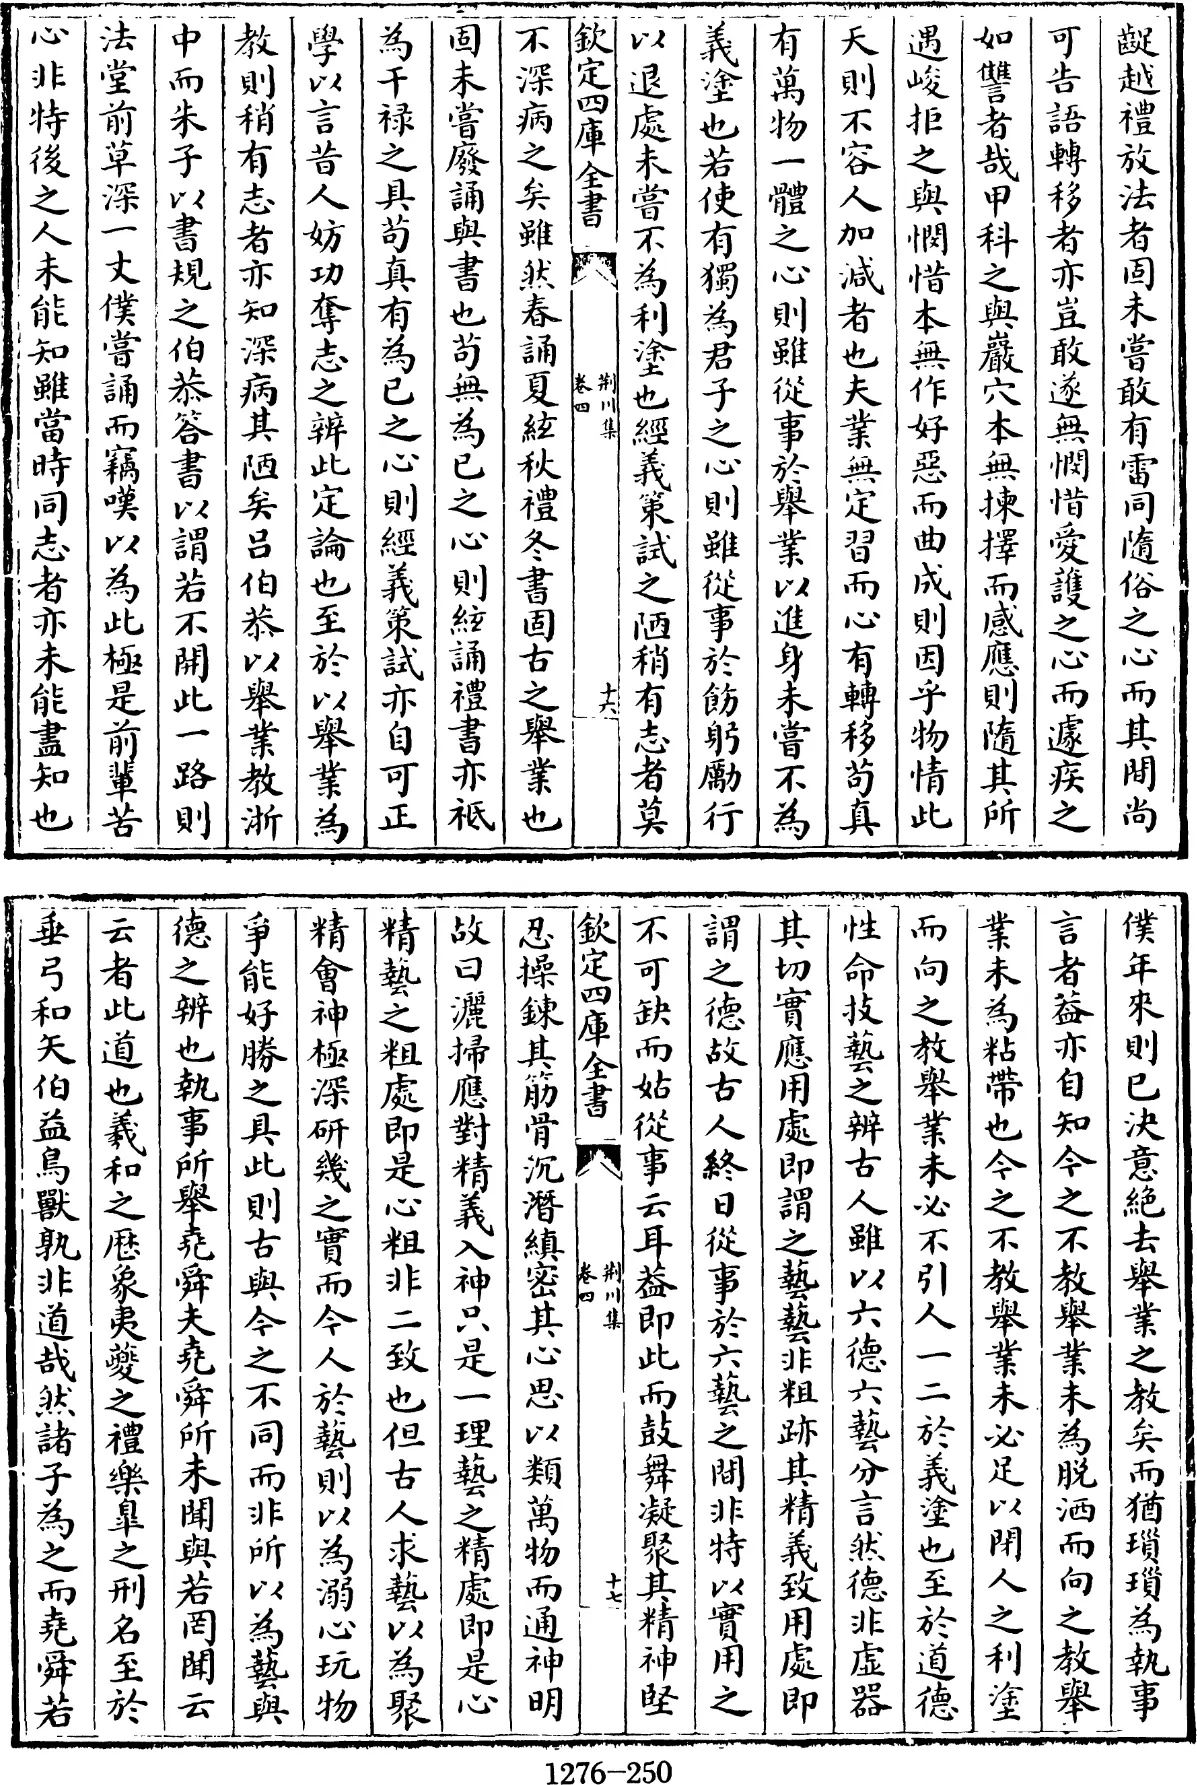 齪越禮放法者固未嘗敢有雷同隨俗之心而其間尚
可告語轉移者亦豈敢遂無憫惜愛護之心而遽疾之
如讐者哉甲科之與巖穴本無揀擇而感應則隨其所
遇峻拒之與憫惜本無作好惡而曲成則因乎物情此
天則不容人加減者也夫業無定習而心有轉移苟真
有萬物一體之心則雖從事於舉業以進身未嘗不為
義塗也若使有獨為君子之心則雖從事於飭躬勵行
以退處未嘗不為利塗也經義策試之陋稍有志者莫
欽定四庫全書
荆川集
卷四
十六
不深病之矣雖然春誦夏絃秋禮冬書固古之舉業也
固未嘗廢誦與書也苟無為已之心則絃誦禮書亦祗
為干禄之具苟真有為已之心則經義策試亦自可正
學以言昔人妨功奪志之辨此定論也至於以舉業為
教則稍有志者亦知深病其陋矣吕伯恭以舉業教浙
中而朱子以書規之伯恭答書以謂若不開此一路則
法堂前草深一丈僕嘗誦而竊嘆以為此極是前輩苦
心非特後之人未能知雖當時同志者亦未能盡知也
僕年來則已決意絶去舉業之教矣而猶瑣瑣為執事
言者葢亦自知今之不教舉業未為脱洒而向之教舉
業未為粘帶也今之不教舉業未必足以閉人之利塗
而向之教舉業未必不引人一二於義塗也至於道德
性命技藝之辨古人雖以六德六藝分言然德非虛器
其切實應用處即謂之藝藝非粗跡其精義致用處即
謂之德故古人終日從事於六藝之間非特以實用之
不可缺而姑從事云耳葢即此而鼓舞凝聚其精神堅
欽定四庫全書
荆川集
卷四
十七
忍操鍊其筋骨沉潛縝密其心思以類萬物而通神明
故曰灑掃應對精義入神只是一理藝之精處即是心
精藝之粗處即是心粗非二致也但古人求藝以為聚
精會神極深研幾之實而今人於藝則以為溺心玩物
爭能好勝之具此則古與今之不同而非所以為藝與
德之辨也執事所舉堯舜夫堯舜所未聞與若罔聞云
云者此道也羲和之厯象夷夔之禮樂臯之刑名至於
垂弓和矢伯益鳥獸孰非道哉然諸子為之而堯舜若
1276—250